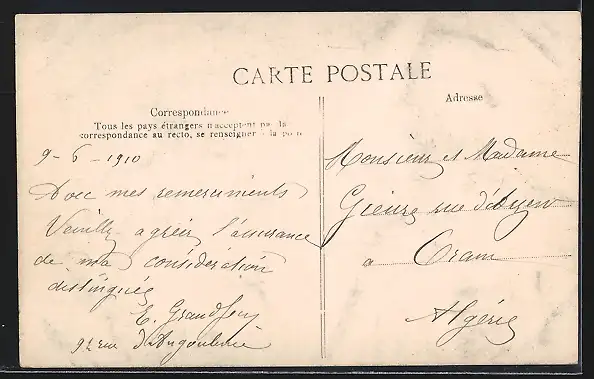 CARTE POSTALE
Correspondance
Tous les pays étrangers n'acceptent pas la
correspondance au recto, se renseigner à la poste
Adresse
9-6-1910
Avec mes remerciments
Veuillez agréer l'assurance
de ma considération
distinguée
E. Grandjouy
92 rue d'Angoulême
Monsieur et Madame
rue
a Oran
Algérie